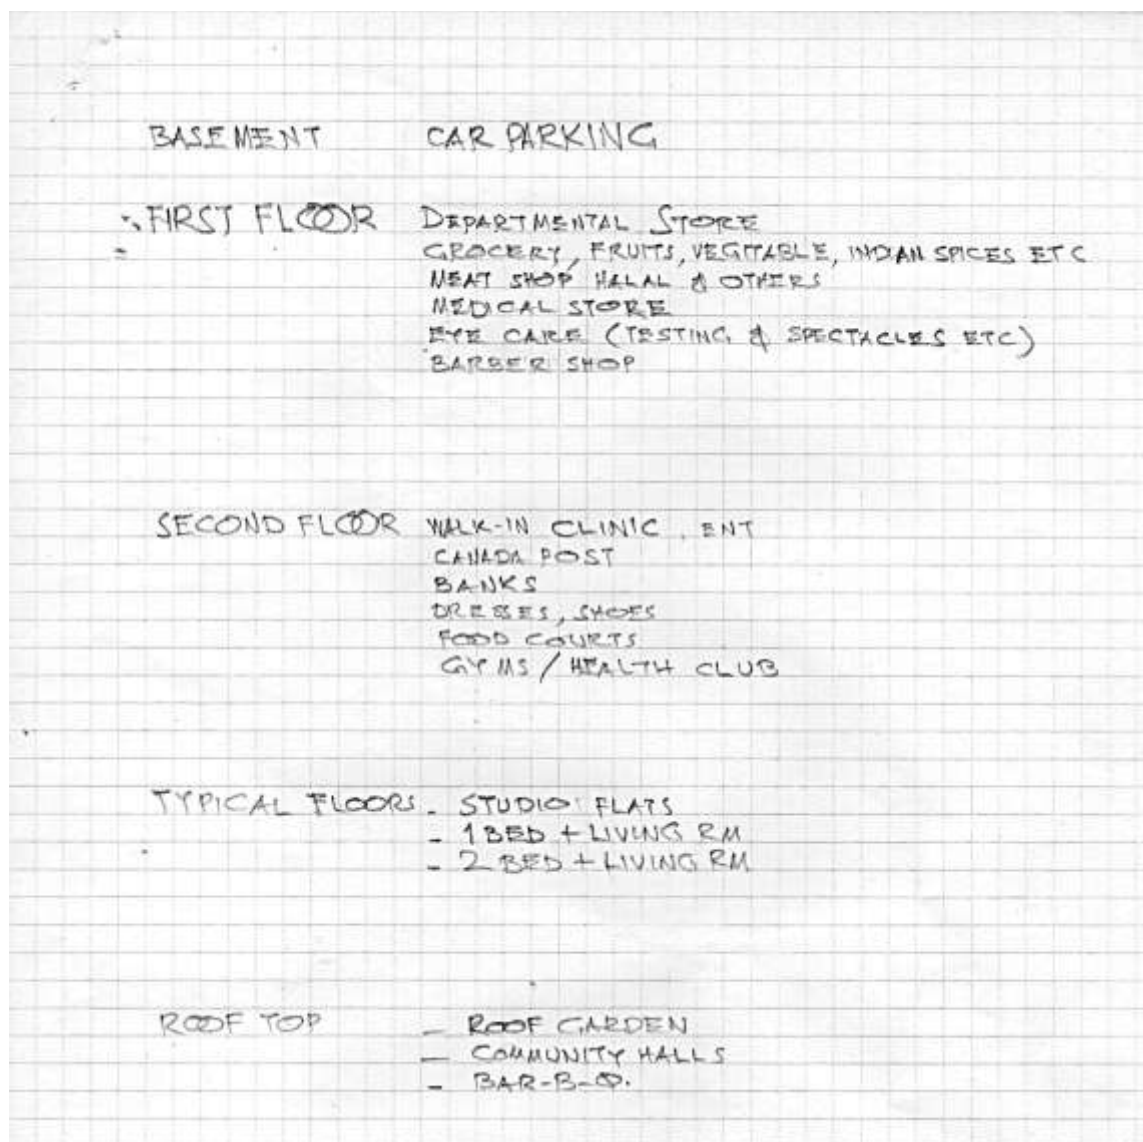 BASEMENT CAR PARKING
FIRST FLOOR DEPARTMENTAL STORE
GROCERY, FRUITS, VEGITABLE, INDIAN SPICES ETC
MEAT SHOP HALAL & OTHERS
MEDICAL STORE
EYE CARE (TESTING & SPECTACLES ETC)
BARBER SHOP
SECOND FLOOR WALK-IN CLINIC, ENT
CANADA POST
BANKS
DRESSES, SHOES
FOOD COURTS
GYMS / HEALTH CLUB
TYPICAL FLOORS - STUDIO FLATS
- 1 BED + LIVING RM
- 2 BED + LIVING RM
ROOF TOP - ROOF GARDEN
- COMMUNITY HALLS
- BAR-B-Q.